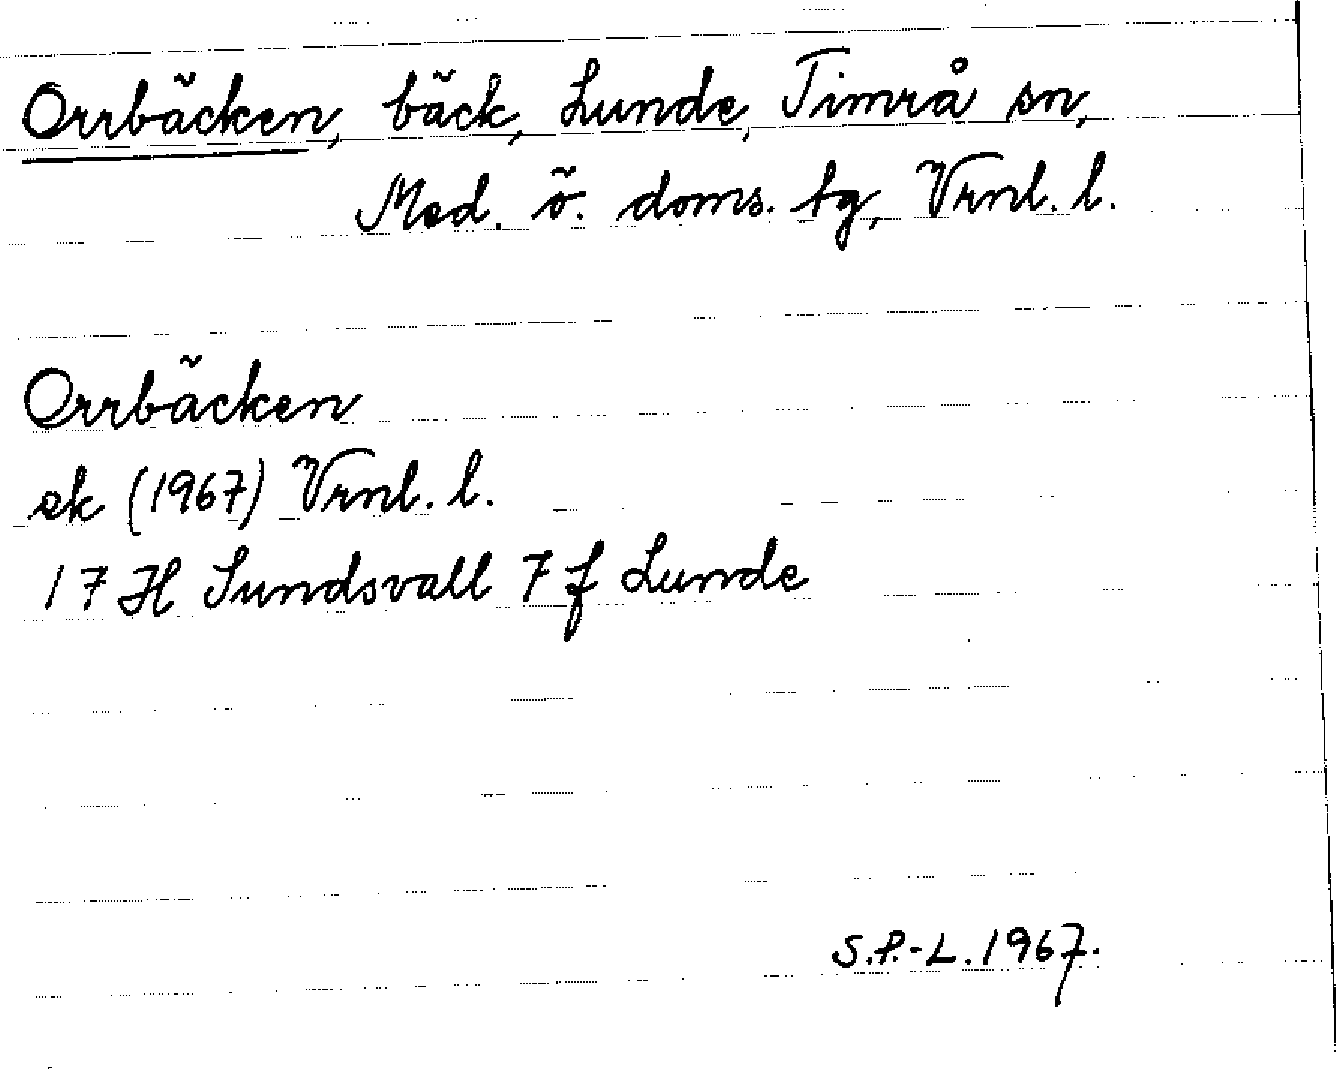 Orrbäcken, bäck, Lunde, Timrå sn,
Med. ö. doms. tg, Vrnl. l.
Orrbäcken
ek (1967) Vrnl. l.
17 H Sundsvall 7 f Lunde
S.P.-L. 1967.